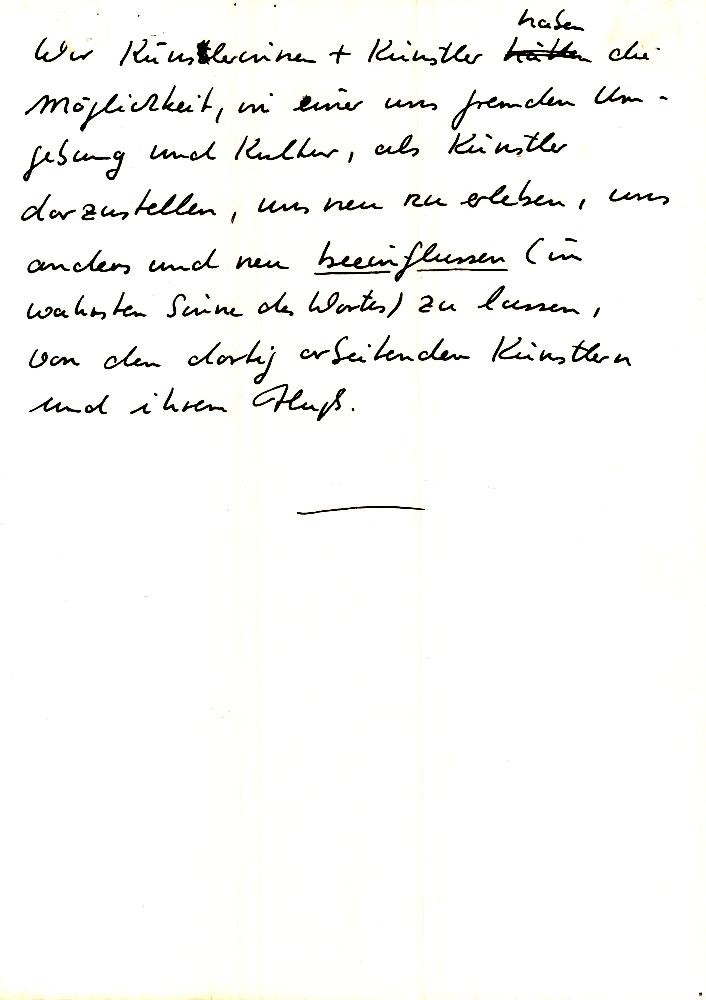 haben
Wir Künstlerinnen + Künstler hätten die
Möglichkeit, in einer uns fremden Um-
gebung und Kultur, als Künstler
darzustellen, uns neu zu erleben, uns
anders und neu beeinflussen (im
wahrsten Sinne des Wortes) zu lassen,
von den dortig arbeitenden Künstlern
und ihrem Fluß.